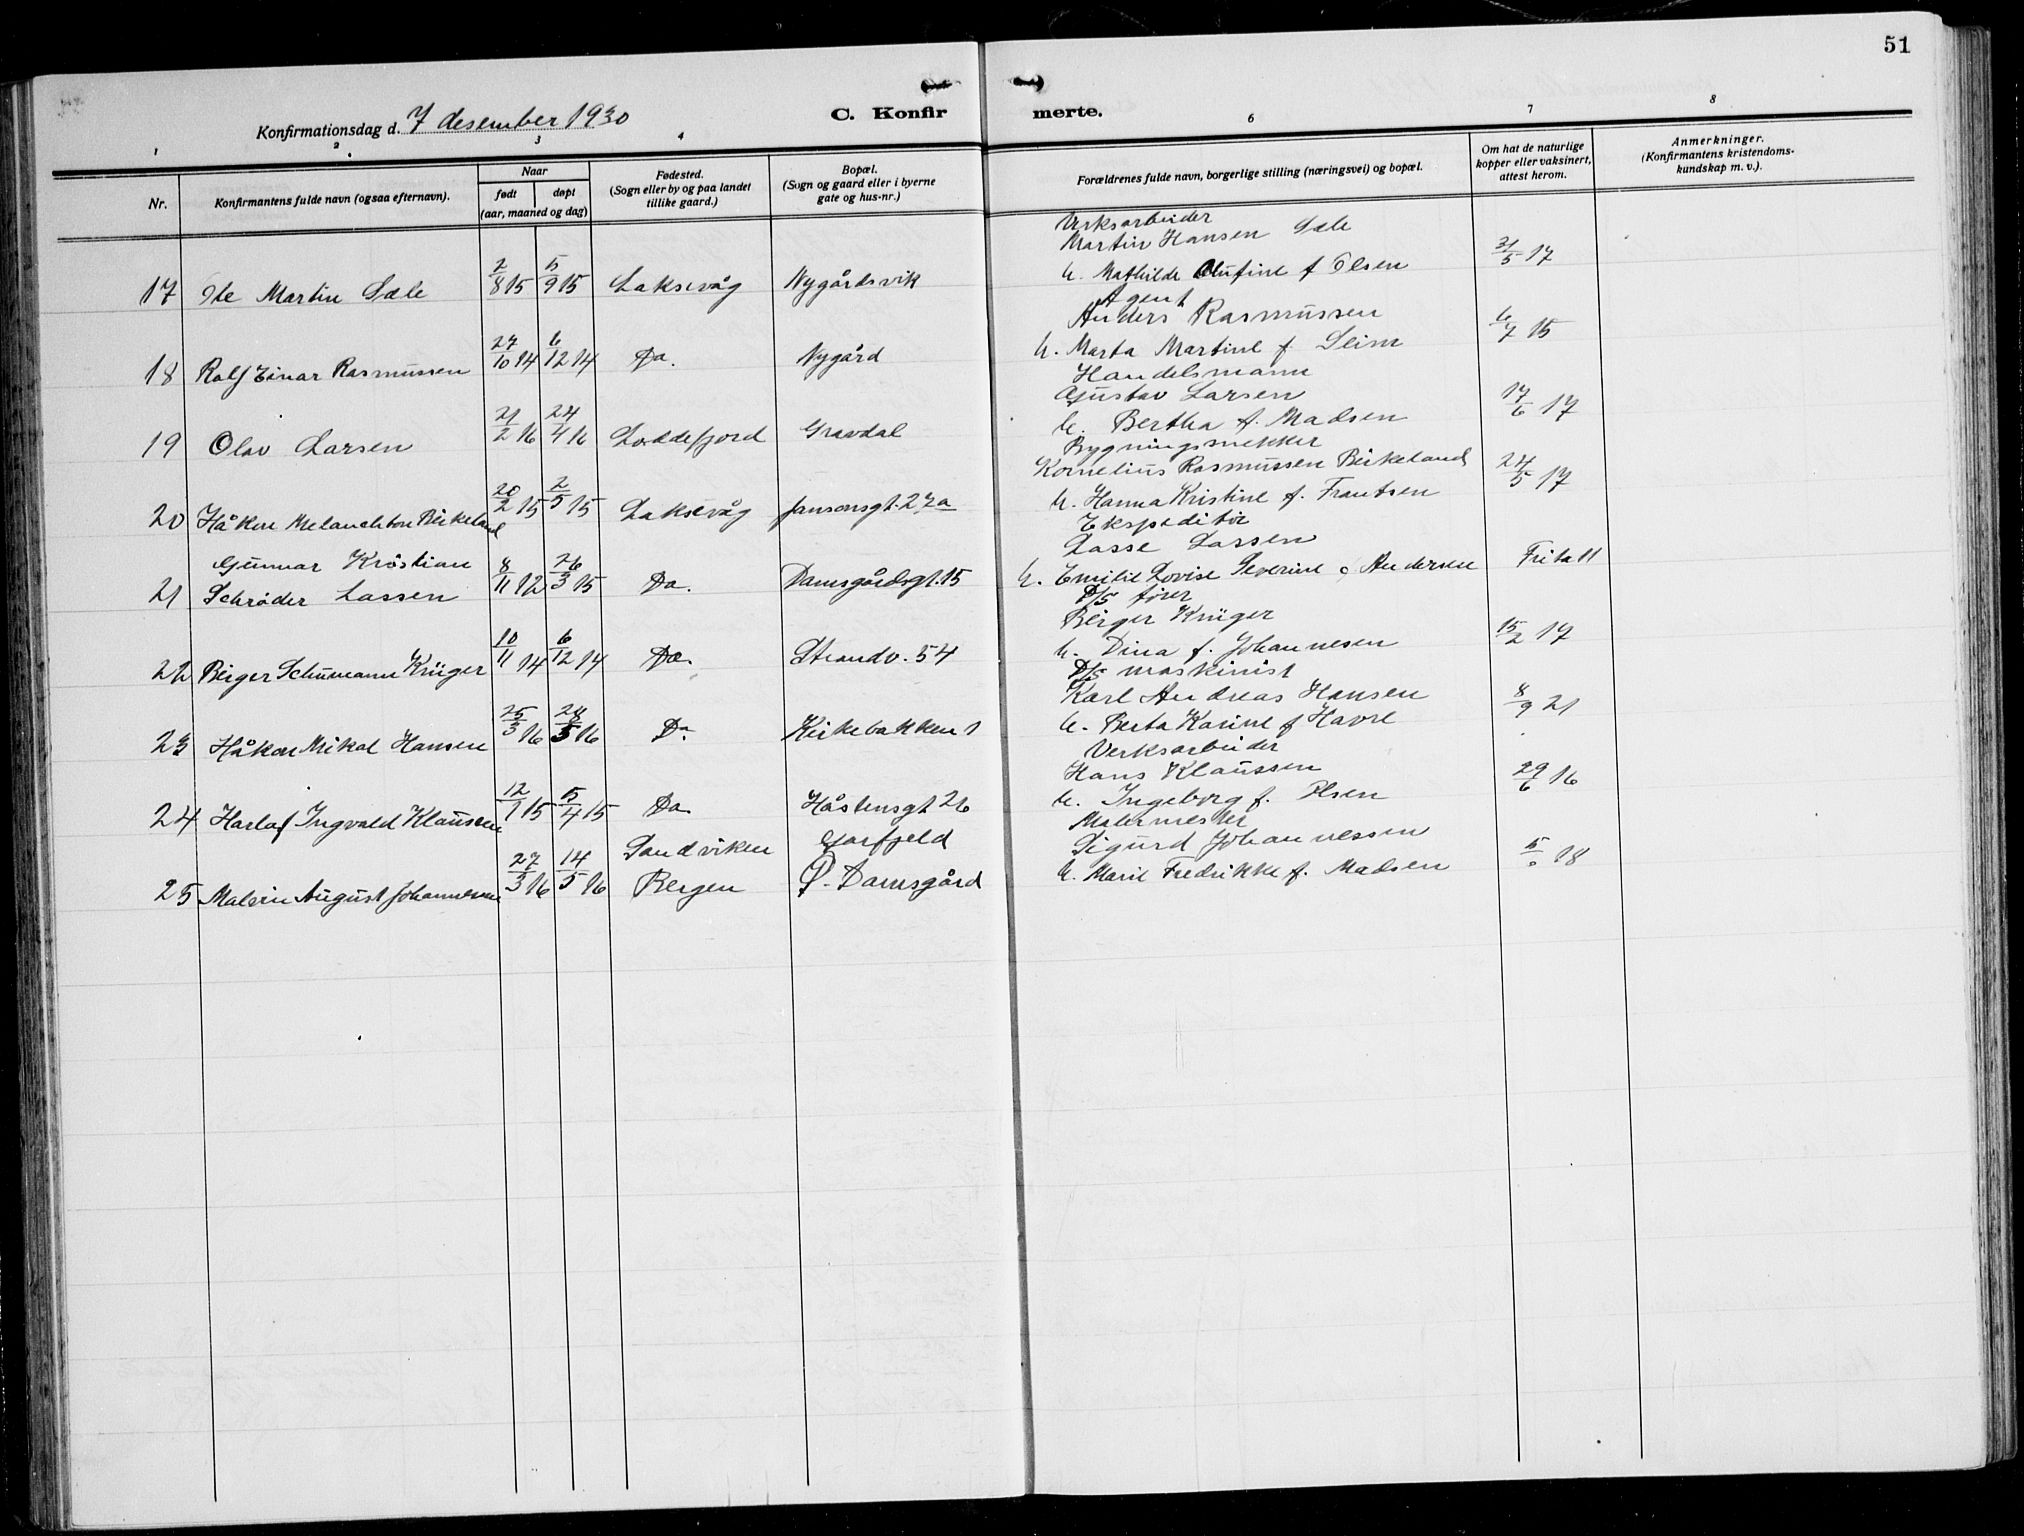 51
Konfirmationsdag d. 7 desember 1930
C. Konfirmerte.
1 2 3 4 6 7 8
Nr.
Konfirmantens fulde navn (ogsaa efternavn).
Naar
født døpt
(aar, maaned og dag)
Fødested.
(Sogn eller by og paa landet
tillike gaard.)
Bopæl.
(Sogn og gaard eller i byerne
gate og hus-nr.)
Forældrenes fulde navn, borgerlige stilling (næringsvei) og bopæl.
Om hat de naturlige
kopper eller vaksinert,
attest herom.
Anmerkninger.
(Konfirmantens kristendoms-
kundskap m. v.).
Verksarbeider
Martin Hansen Sæle
17 Ole Martin Sæle 2/8 15 5/9 15 Laksevåg Nygårdsvik h. Mathilde Olufine f Olsen 31/5 17
Agent
Anders Rasmussen
18 Rolf Einar Rasmussen 27/10 14 6/12 14 Do. Nygård h. Marta Martine f. Seim 6/7 15
Handelsmann
Gustav Larsen
19 Olav Larsen 21/2 16 24/4 16 Loddefjord Gravdal h. Bertha f. Madsen 17/6 17
Bygningssnekker
Kornelius Rasmussen Birkeland
20 Håkon Melanchton Birkeland 20/2 15 2/5 15 Laksevåg Jansonsgt. 27a h. Hanna Kristine f. Frantsen 24/5 17
Ekspeditør
Lasse Lassen
Gunnar Kristian
21 Schrøder Lassen 8/11 12 26/3 15 Do. Damsgårdsgt. 15 h. Emilie Lovise Severine f Andersen Fritatt
D/S fører
Birger Krüger
22 Birger Schumann Krüger 10/11 14 6/12 14 Do. Strandv. 54 h. Dina f. Johannesen 15/2 17
D/S maskinist
Karl Andreas Hansen
23 Håkon Mikal Hansen 25/3 16 28/5 16 Do Kirkebakken 1 h. Berta Karine f Havre 8/9 21
Verksarbeider
Hans Klaussen
24 Harlof Ingvald Klausen 12/1 15 5/4 15 Do Håstensgt 26 h. Ingeborg f. Olsen 29/6 16
Malermester
Sigurd Johannessen
Sandviken Gorfjeld
25 Malvin August Johannessen 27/3 16 14/5 16 Bergen Ø. Damsgård h. Marie Fredrikke f. Madsen 18